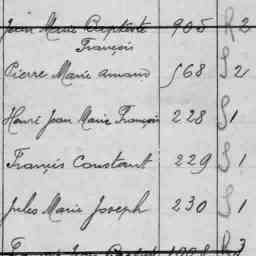 Jean Marie Baptiste 905 R 2
François
Pierre Marie Amand 568 S 2
Henri Jean Marie François 228 S 1
Francis Constant 229 S 1
Jules Marie Joseph 230 S 1